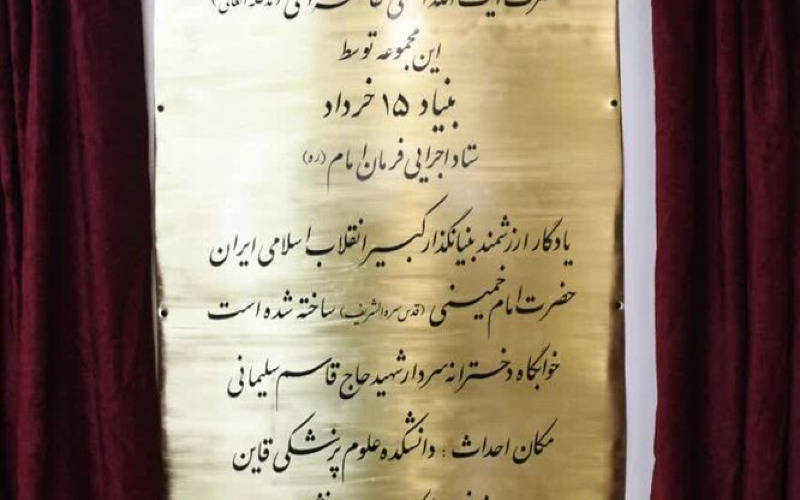 حضرت آیت الله العظمی خامنه ای (مدظله العالی)
این مجموعه توسط
بنیاد ۱۵ خرداد
ستاد اجرایی فرمان امام (ره)
یادگار ارزشمند بنیانگذار کبیر انقلاب اسلامی ایران
حضرت امام خمینی (قدس سره الشریف) ساخته شده است
خوابگاه دخترانه سردار شهید حاج قاسم سلیمانی
مکان احداث : دانشکده علوم پزشکی قاین